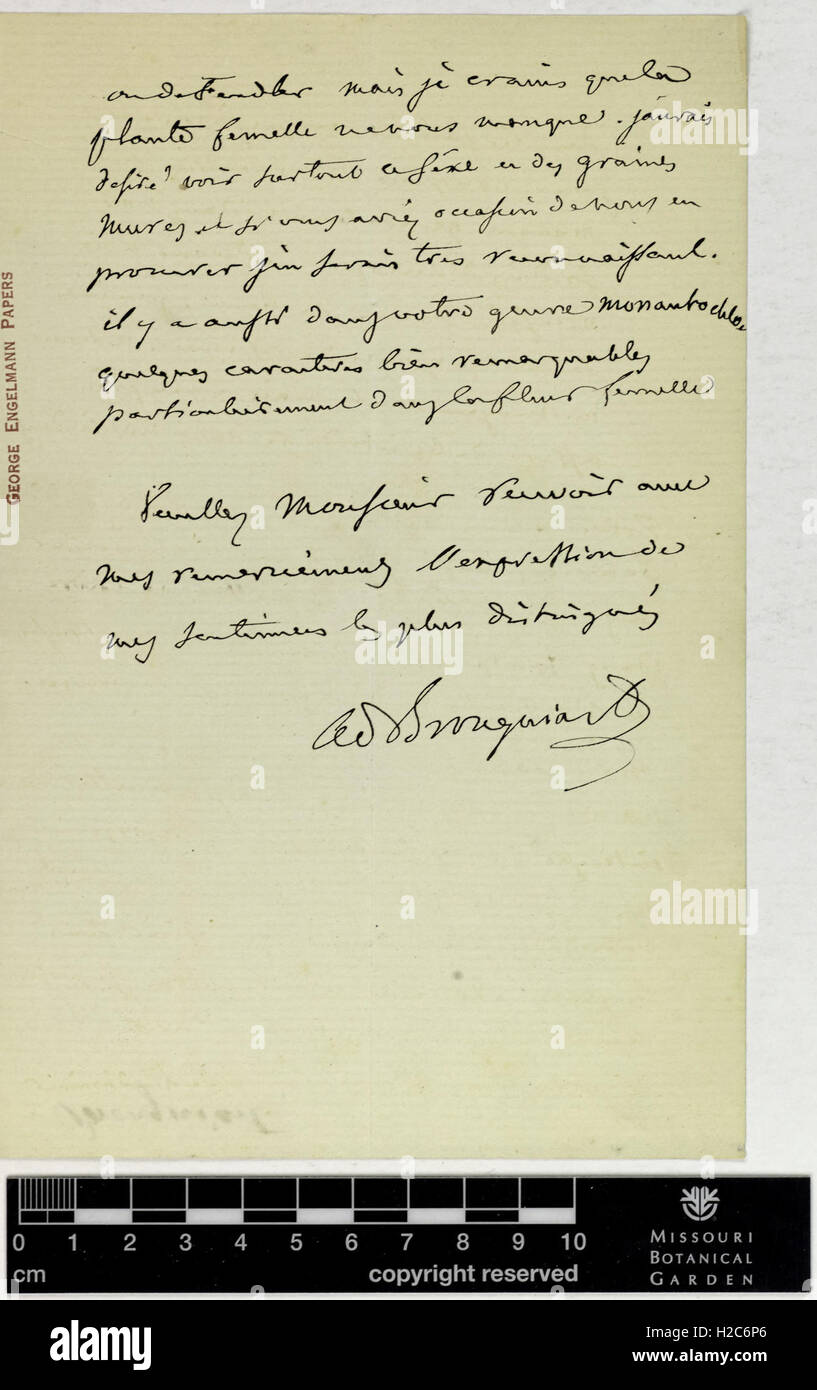 ou de Fendler mais je crains que la
plante femelle ne nous manque. j'aurais
desiré voir surtout ce sexe et des graines
mures et si vous aviez occasion de nous en
procurer j'en serais tres reconnaissant.
il y a aussi dans votre genre Monanthochloe
quelques caracteres bien remarquables
particulierement dans la fleur femelle
Veuillez Monsieur recevoir avec
mes remerciements l'expression de
mes sentimens les plus distingués
Ad Brongniart
GEORGE ENGELMANN PAPERS
0 1 2 3 4 5 6 7 8 9 10
cm copyright reserved
MISSOURI
BOTANICAL
GARDEN
alamy
a alamy stock photo
H2C6P6
www.alamy.com